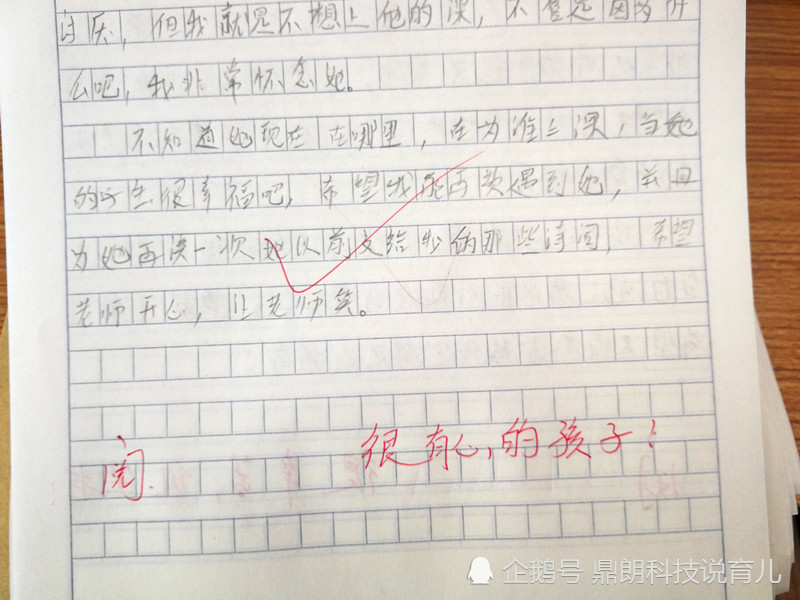 讨厌，但我就是不想上他的课，不管是因为什
么吧，我非常怀念她。
不知道她现在在哪里，在为谁上课，当她
的学生很幸福吧，希望我能再次遇到她，并且
为她再读一次她以前交给我的那些诗词，希望
老师开心，让老师笑。
很有心的孩子！
阅.
企鹅号 鼎朗科技说育儿